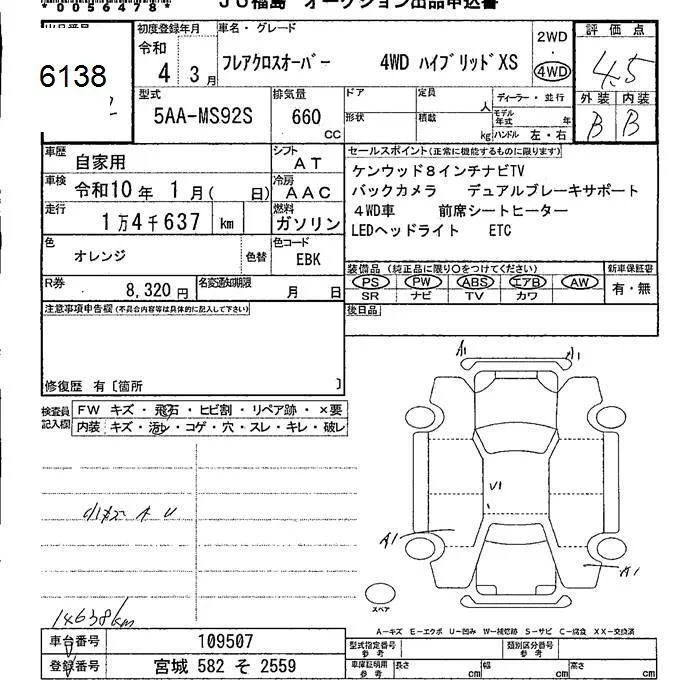 *0056478*
JU福島 オークション出品申込書
6138
初度登録年月
令和
4 3月
車名・グレード
フレアクロスオーバー 4WD ハイブリッドXS
2WD
・
4WD
評価点
4.5
外装 内装
B B
型式
5AA-MS92S
排気量
660
cc
ドア
形状
定員
人
積載
kg
ディーラー・並行
モデル年式 年
ハンドル 左・右
車歴
自家用
シフト
AT
車検
令和10年 1月( 日)
冷房
AAC
走行
1万4千637 km
燃料
ガソリン
色
オレンジ
色替
色コード
EBK
R券
8,320円
名変通知期限
月 日
セールスポイント(正常に機能するものに限ります)
ケンウッド8インチナビTV
バックカメラ デュアルブレーキサポート
4WD車 前席シートヒーター
LEDヘッドライト ETC
装備品(純正品に限り○をつけてください)
新車保証書
PS PW ABS エアB AW
有・無
SR ナビ TV カワ
後日品
注意事項申告欄(不具合内容等は具体的に記入して下さい)
修復歴 有〔箇所 〕
検査員記入欄
FW キズ・飛石・ヒビ割・リペア跡・×要
内装 キズ・汚レ・コゲ・穴・スレ・キレ・破レ
A1 A1
U1
A1
A1
スペア
14638km
A-キズ E-エクボ U-凹み W-補修跡 S-サビ C-腐食 XX-交換済
車台番号 109507
登録番号 宮城 582 そ 2559
型式指定番号 参考
類別区分番号 参考
車庫証明用 参考
長さ cm 幅 cm 高さ cm